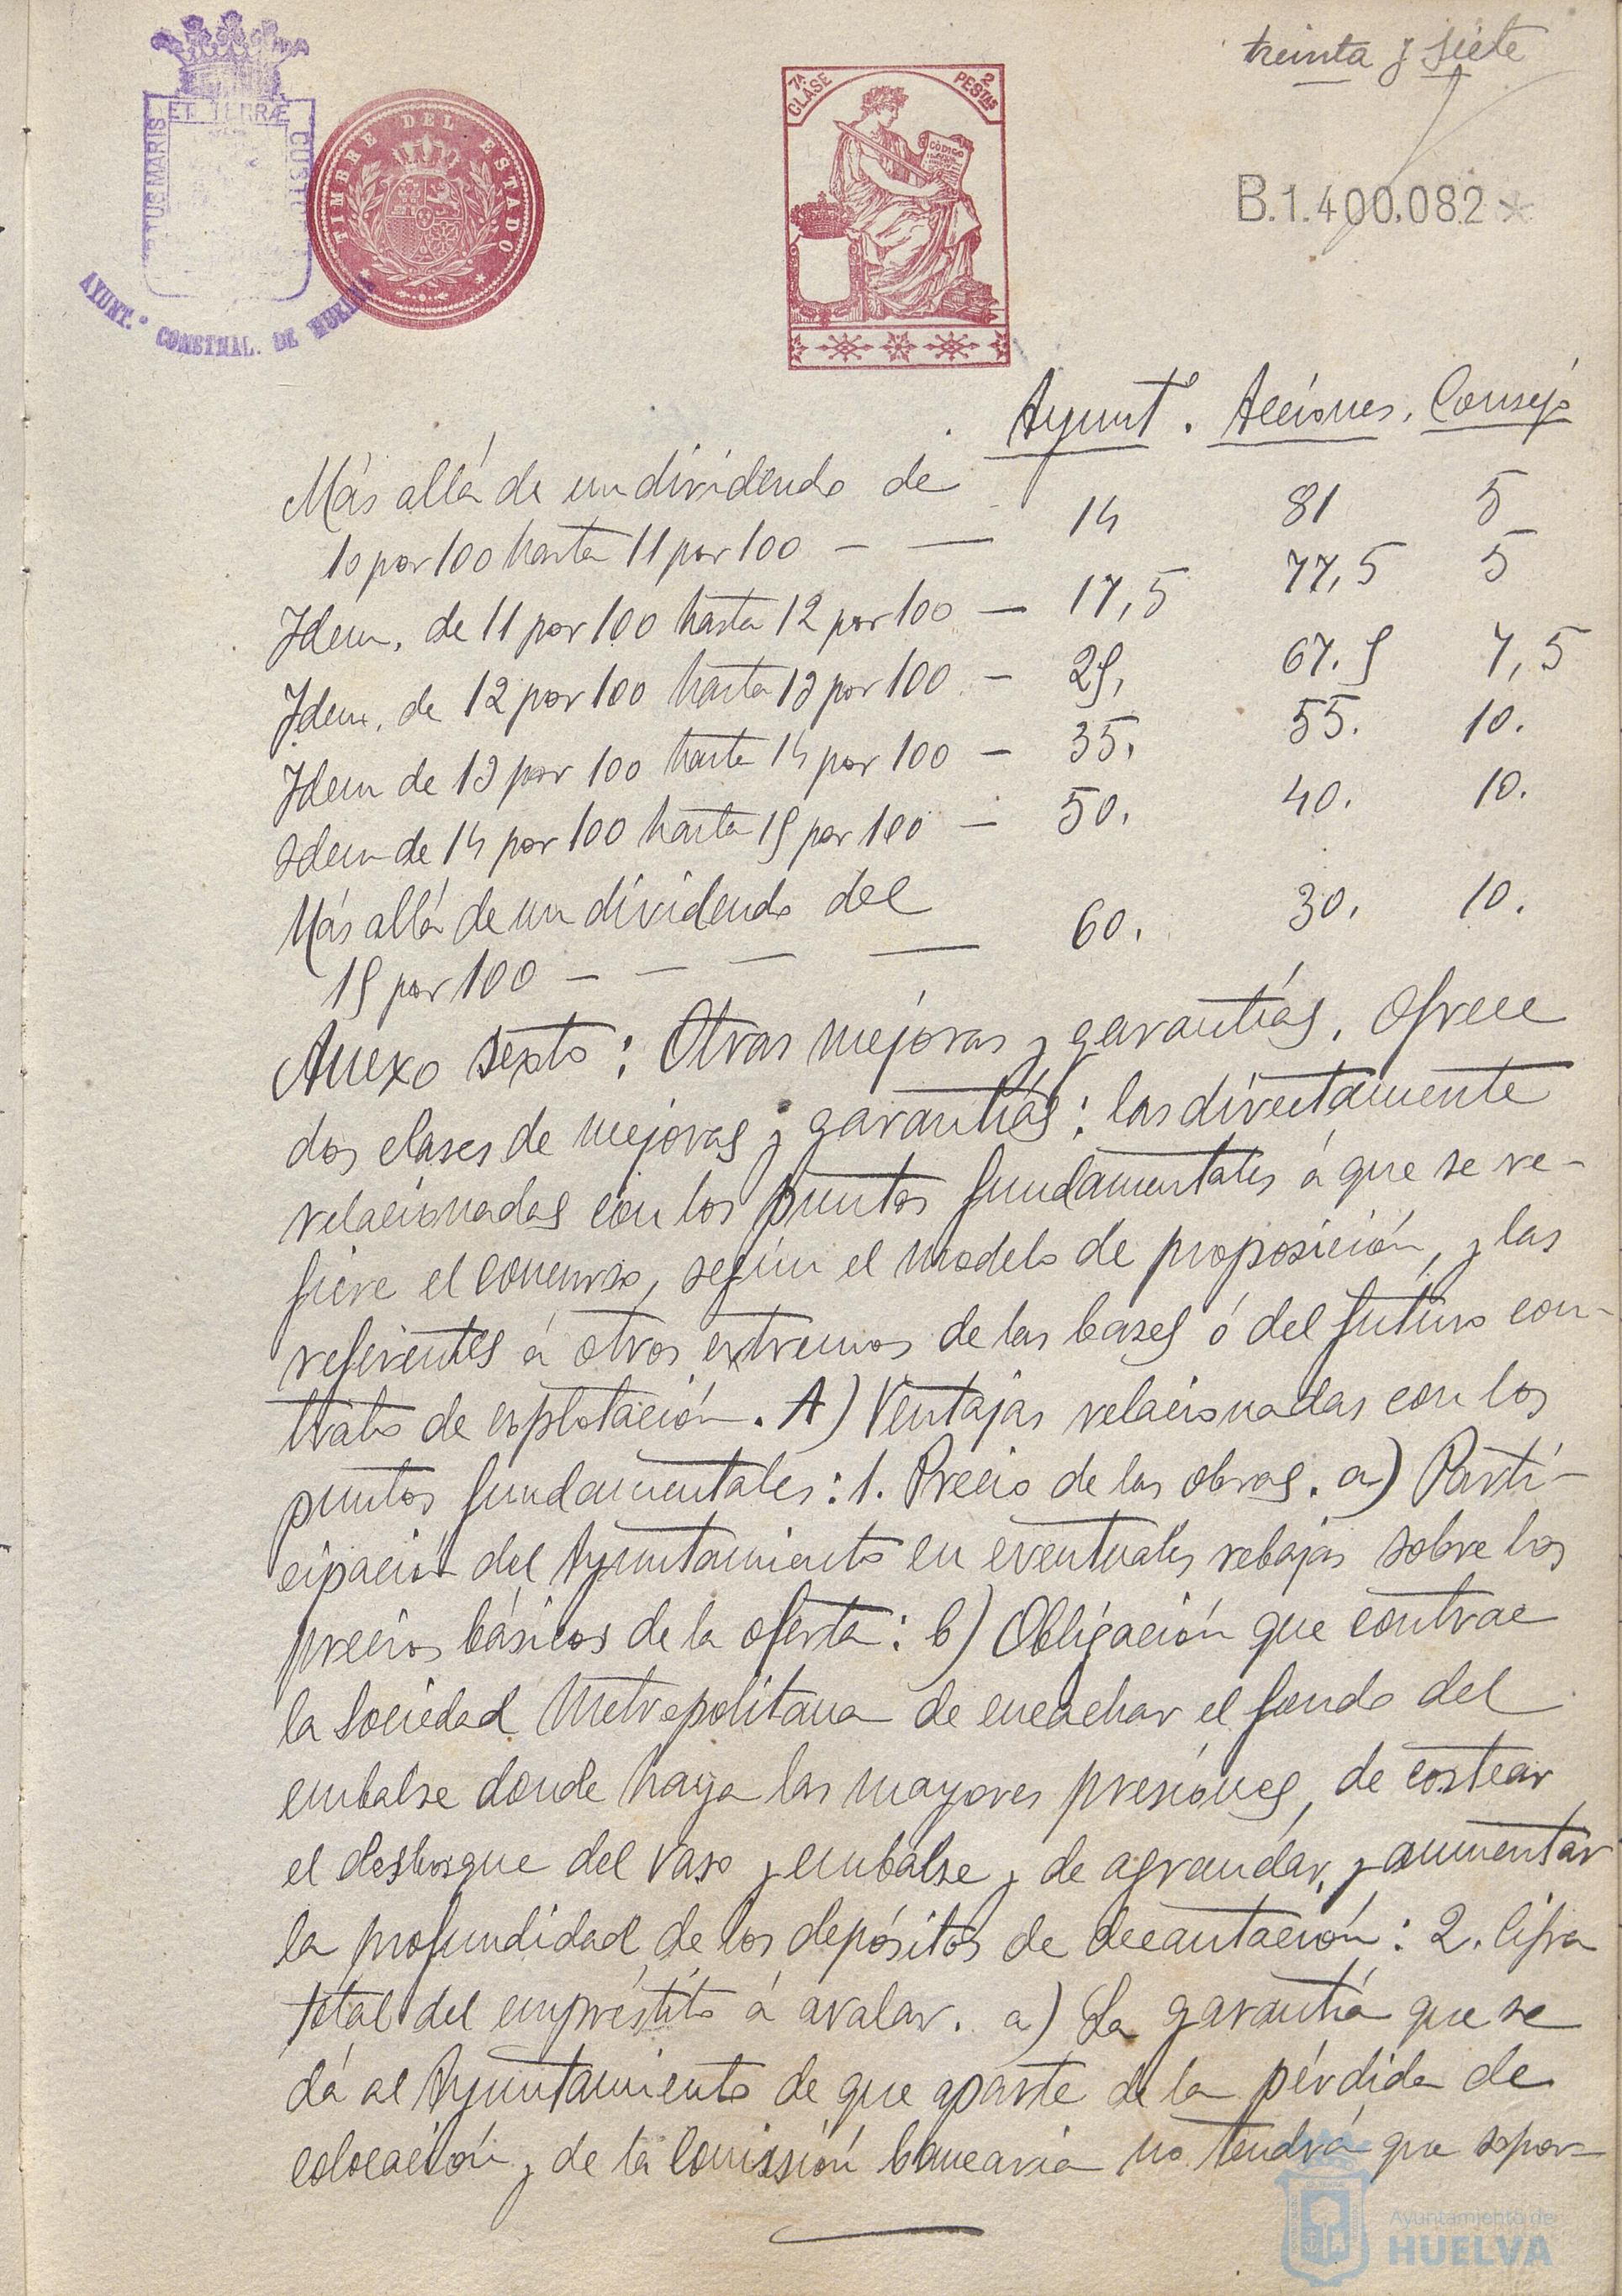 treinta y siete
ET TERRÆ
PORTUS MARIS
CUST
AYUNT.º CONSTNAL. DE HUELVA
TIMBRE DEL ESTADO
7ª CLASE
2 PESTAS
CODIGO
B.1.400.082*
Ayuntº. Acciones. Consejo
Más allá de un dividendo de
10 por 100 hasta 11 por 100 — — 14 81 5
Idem. de 11 por 100 hasta 12 por 100 — 17,5 77,5 5
Idem. de 12 por 100 hasta 13 por 100 — 25, 67.5 7,5
Idem de 13 por 100 hasta 14 por 100 — 35. 55. 10.
Idem de 14 por 100 hasta 15 por 100 — 50. 40. 10.
Más allá de un dividendo del
15 por 100 — — — — 60. 30. 10.
Anexo sexto: Otras mejoras y garantías. Ofrece
dos clases de mejoras y garantías: las directamente
relacionadas con los puntos fundamentales á que se re-
fiere el concurso, según el modelo de proposición, y las
referentes á otros extremos de las bases ó del futuro con-
trato de explotación. A) Ventajas relacionadas con los
puntos fundamentales: 1. Precio de las obras. a) Parti-
cipación del Ayuntamiento en eventuales rebajas sobre los
precios básicos de la oferta: b) Obligación que contrae
la Sociedad Metropolitana de encachar el fondo del
embalse donde haya las mayores presiones, de costear
el desbosque del vaso y embalse y de agrandar y aumentar
la profundidad de los depósitos de decantación: 2. Cifra
total del empréstito á avalar. a) La garantía que se
dá al Ayuntamiento de que aparte de la pérdida de
colocación y de la Comissión bancaria no tendrá que sopor-
Ayuntamiento de
HUELVA